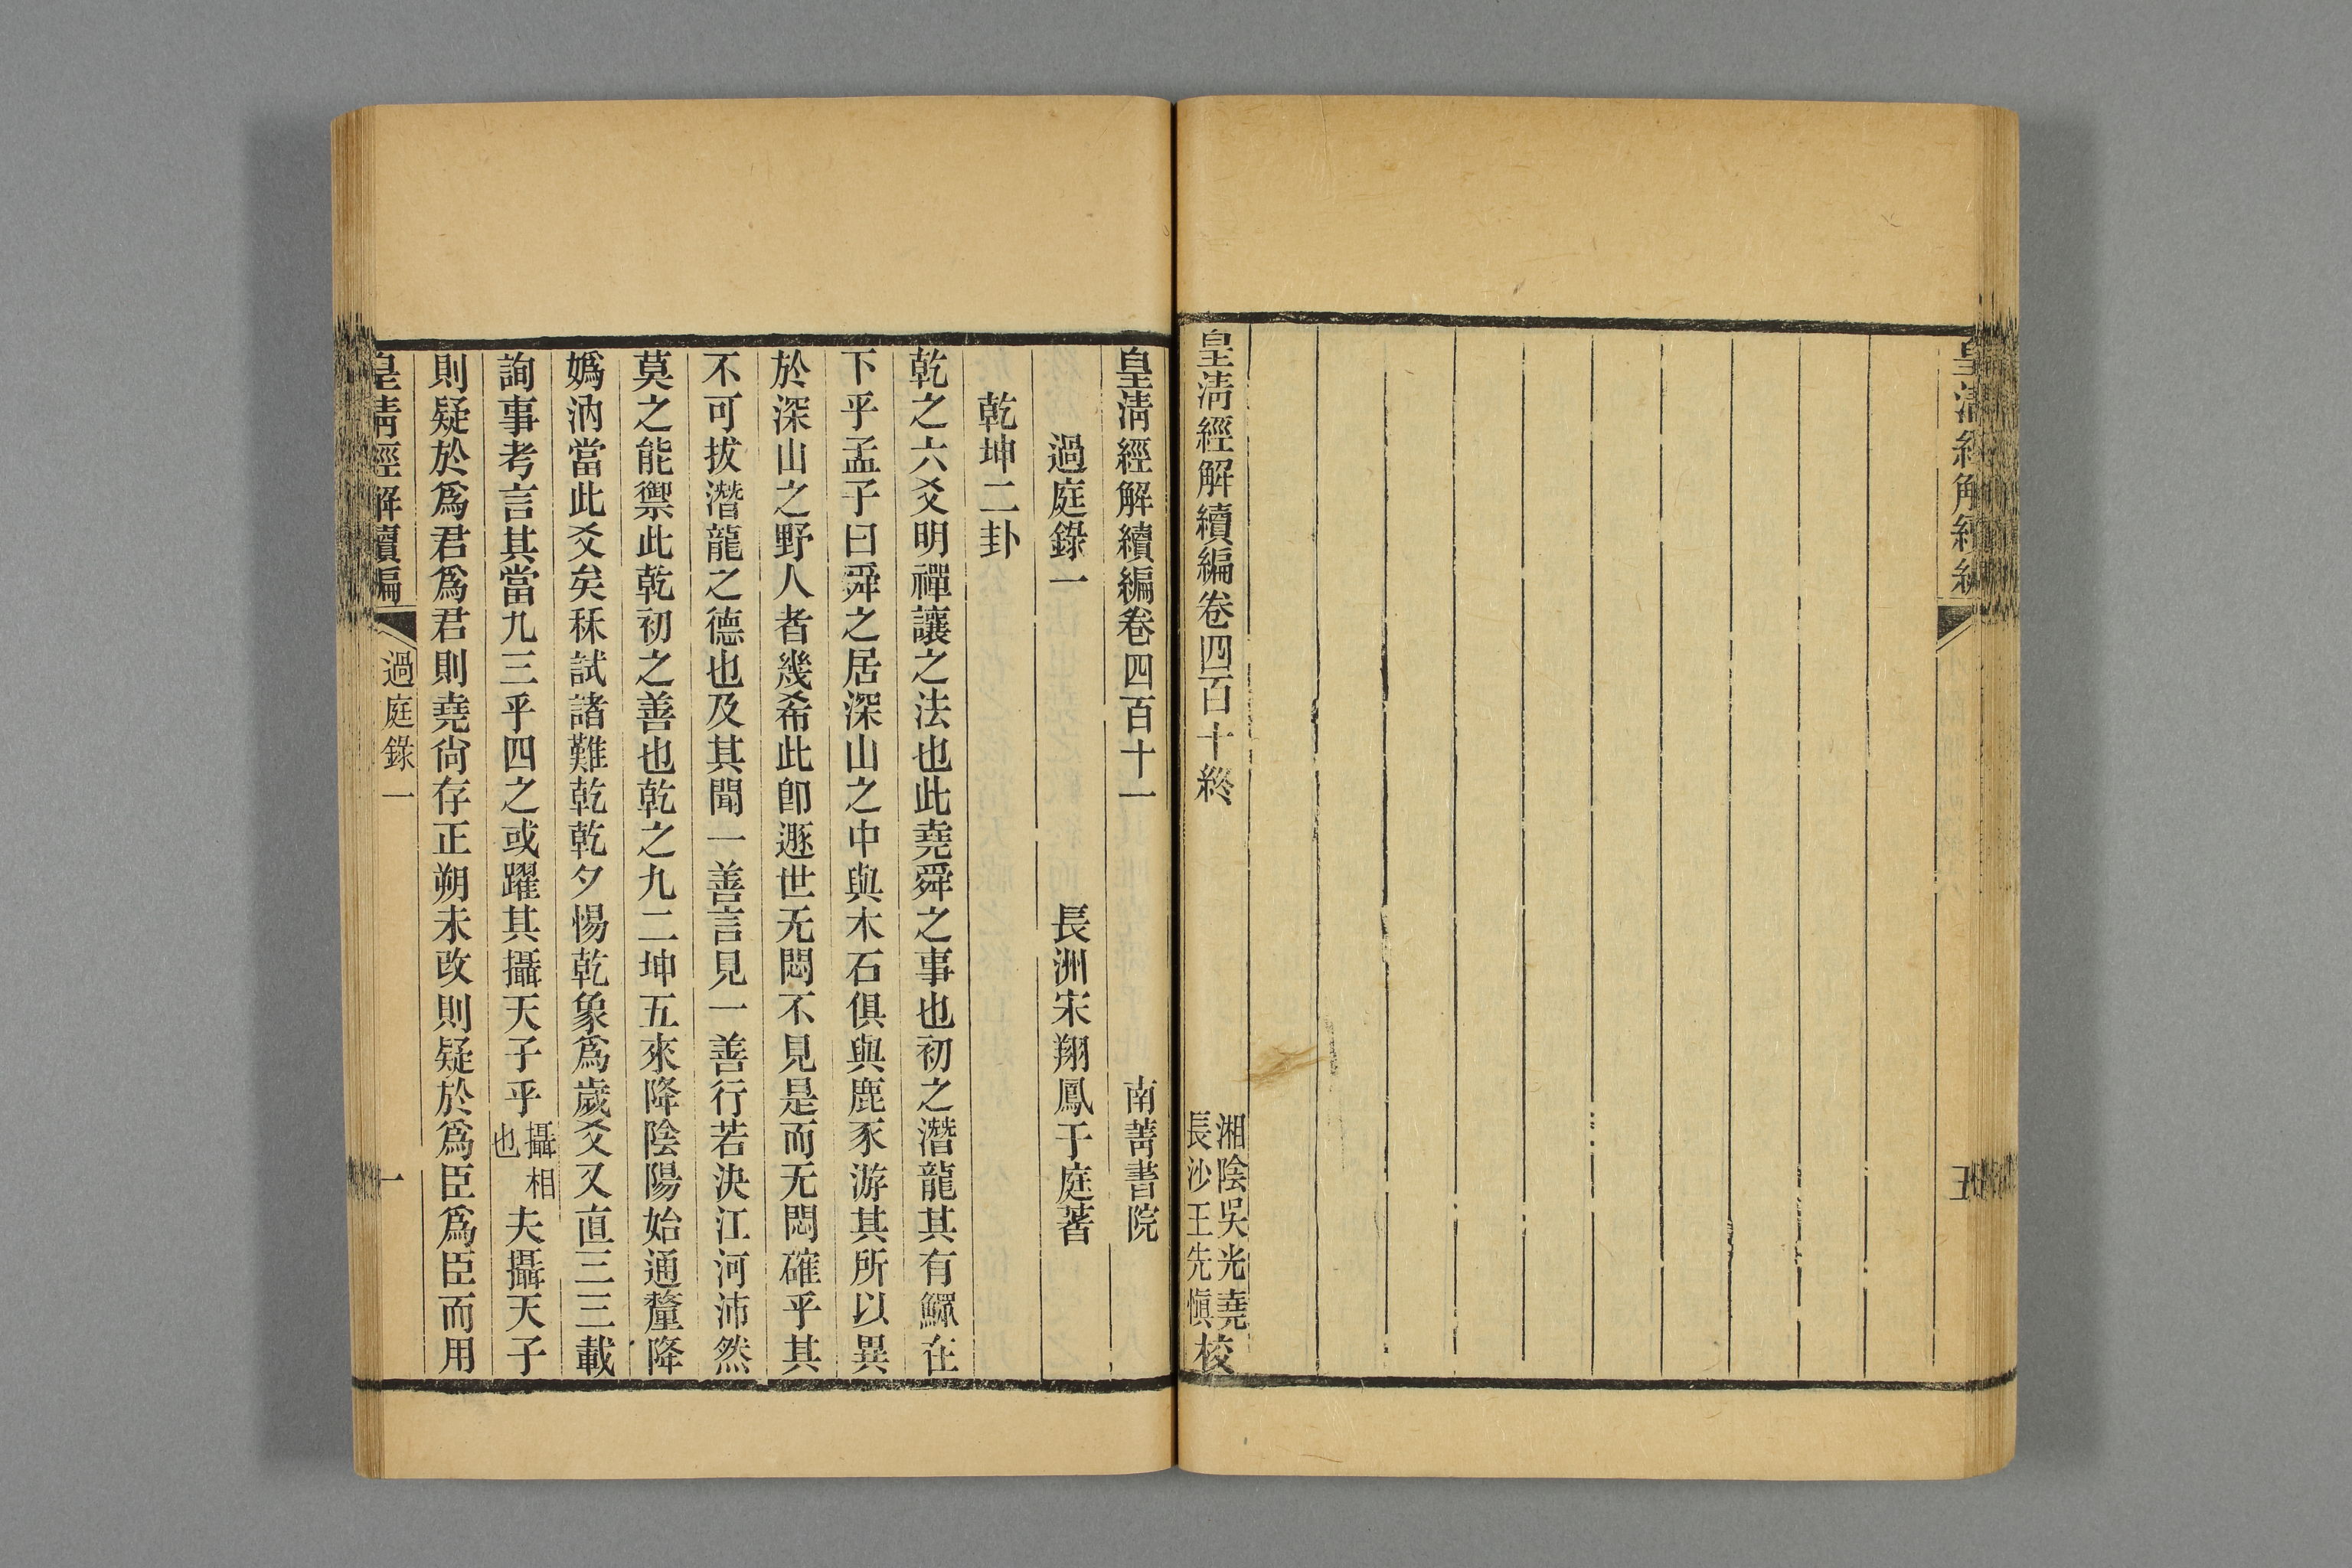 皇清經解續編
五
皇清經解續編卷四百十終
湘陰吳光堯
長沙王先愼
校
皇清經解續編卷四百十一
南菁書院
過庭錄一
長洲宋翔鳳于庭著
乾坤二卦
乾之六爻明禪讓之法也此堯舜之事也初之潛龍其有鰥在
下乎孟子曰舜之居深山之中與木石俱與鹿豕游其所以異
於深山之野人者幾希此卽遯世无悶不見是而无悶確乎其
不可拔潛龍之德也及其聞一善言見一善行若決江河沛然
莫之能禦此乾初之善也乾之九二坤五來降陰陽始通釐降
嬀汭當此爻矣秝試諸難乾乾夕惕乾象爲歲爻又直三三載
詢事考言其當九三乎四之或躍其攝天子乎攝相也夫攝天子
則疑於爲君爲君則堯尙存正朔未改則疑於爲臣爲臣而用
皇清經解續編
過庭錄一
一